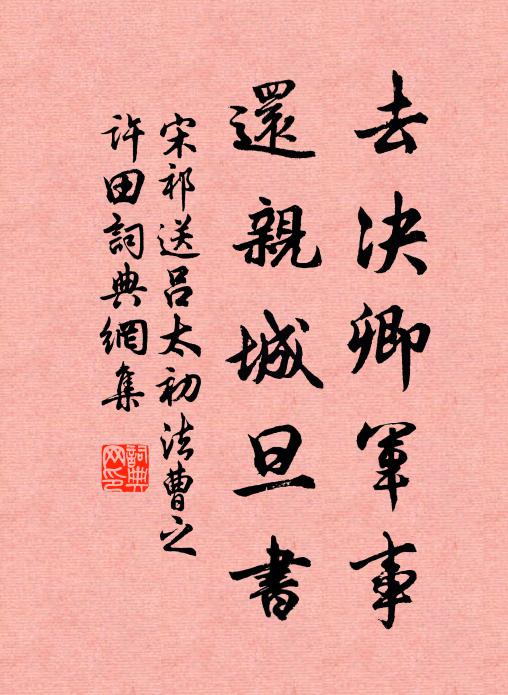 去决卿军事
還親城旦書
宋祁送吕太初法曹之
許田詞典網集
詞典网印